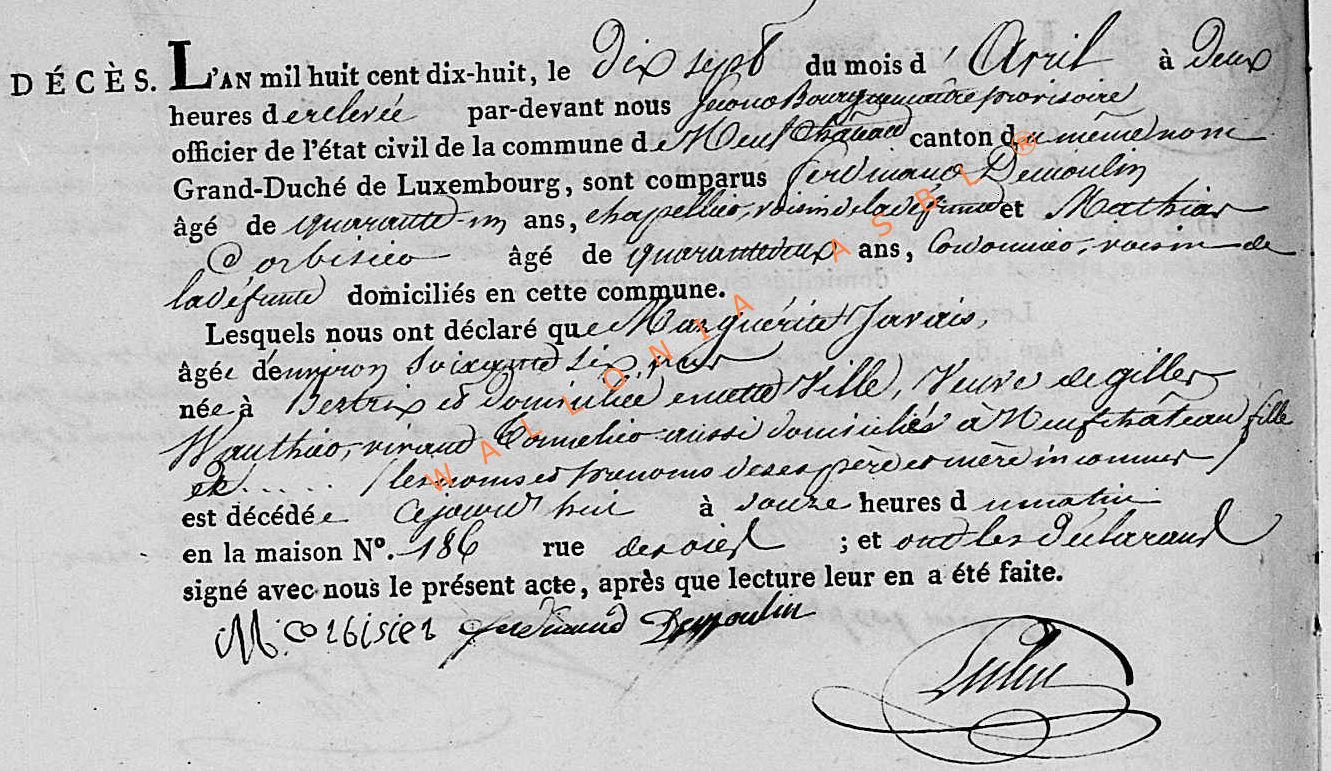 DÉCÈS. L'AN mil huit cent dix-huit, le Dix sept du mois d'Avril à Deux
heures de relevée par-devant nous Second Bourguemaitre provisoire
officier de l'état civil de la commune de Neufchateau canton du même nom
Grand-Duché de Luxembourg, sont comparus ferdinand Demoulin
âgé de quarante un ans, chapellier, voisin de la défunte et Mathias
Corbisier âgé de quarante deux ans, Cordonnier, voisin de
la défunte domiciliés en cette commune.
Lesquels nous ont déclaré que Marguérite Javais,
âgée d'environ Soixante Six ans
née à Bertrix et domiciliée en cette Ville, Veuve de gilles
Wauthier, vivant Cornelier aussi domiciliés à Neufchâteau fille
de ..... (les noms et prenoms de ses père et mère inconnus)
est décédée cejourd'hui à douze heures du matin
en la maison N°. 186 rue ; et ont les Déclarants
signé avec nous le présent acte, après que lecture leur en a été faite.
M: corbisier ferdinand Demoulin
WALLONIA ASBL ®